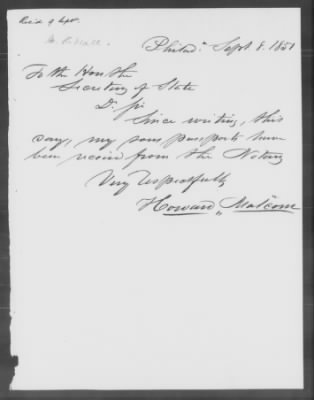 Recd 9 Sept.
Philada. Sept 8. 1851
To the Hon the
Secretary of State
Dr Sir
Since writing, this
day, my sons passports have
been received from the Notary
Very respectfully
Howard Malcom